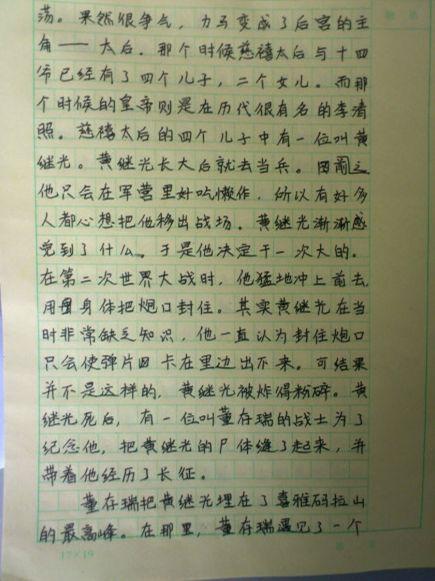 荡。果然很争气,力马变成了后宫的主
角——太后。那个时候慈禧太后与十四
爷已经有了四个儿子,二个女儿。而那
个时候的皇帝则是在历代很有名的李清
照。慈禧太后的四个儿子中有一位叫黄
继光。黄继光长大后就去当兵。因而之
他只会在军营里好吃懒作,所以有好多
人都心想把他移出战场。黄继光渐渐感
觉到了什么。于是他决定干一次大的。
在第二次世界大战时,他猛地冲上前去,
用身体把炮口封住。其实黄继光在当
时非常缺乏知识,他一直认为封住炮口
只会使弹片卡在里边出不来。可结果
并不是这样的,黄继光被炸得粉碎。黄
继光死后,有一位叫董存瑞的战士为了
纪念他,把黄继光的尸体缝了起来,并
带着他经历了长征。
董存瑞把黄继光埋在了喜雅码拉山
的最高峰。在那里,董存瑞遇见了一个
17×19